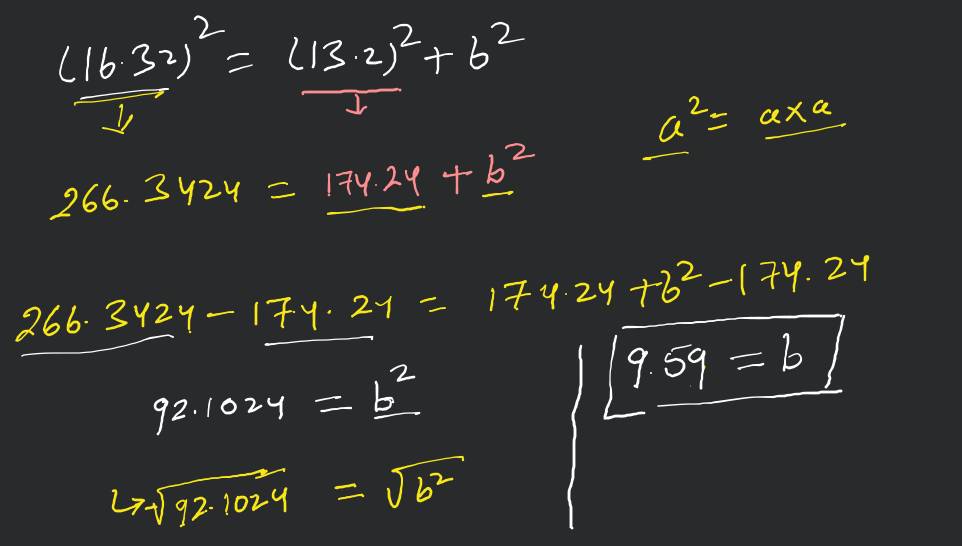 (16.32)² = (13.2)² + b²
a² = a x a
266.3424 = 174.24 + b²
266.3424 - 174.24 = 174.24 + b² - 174.24
92.1024 = b²
↳ √92.1024 = √b²
9.59 = b